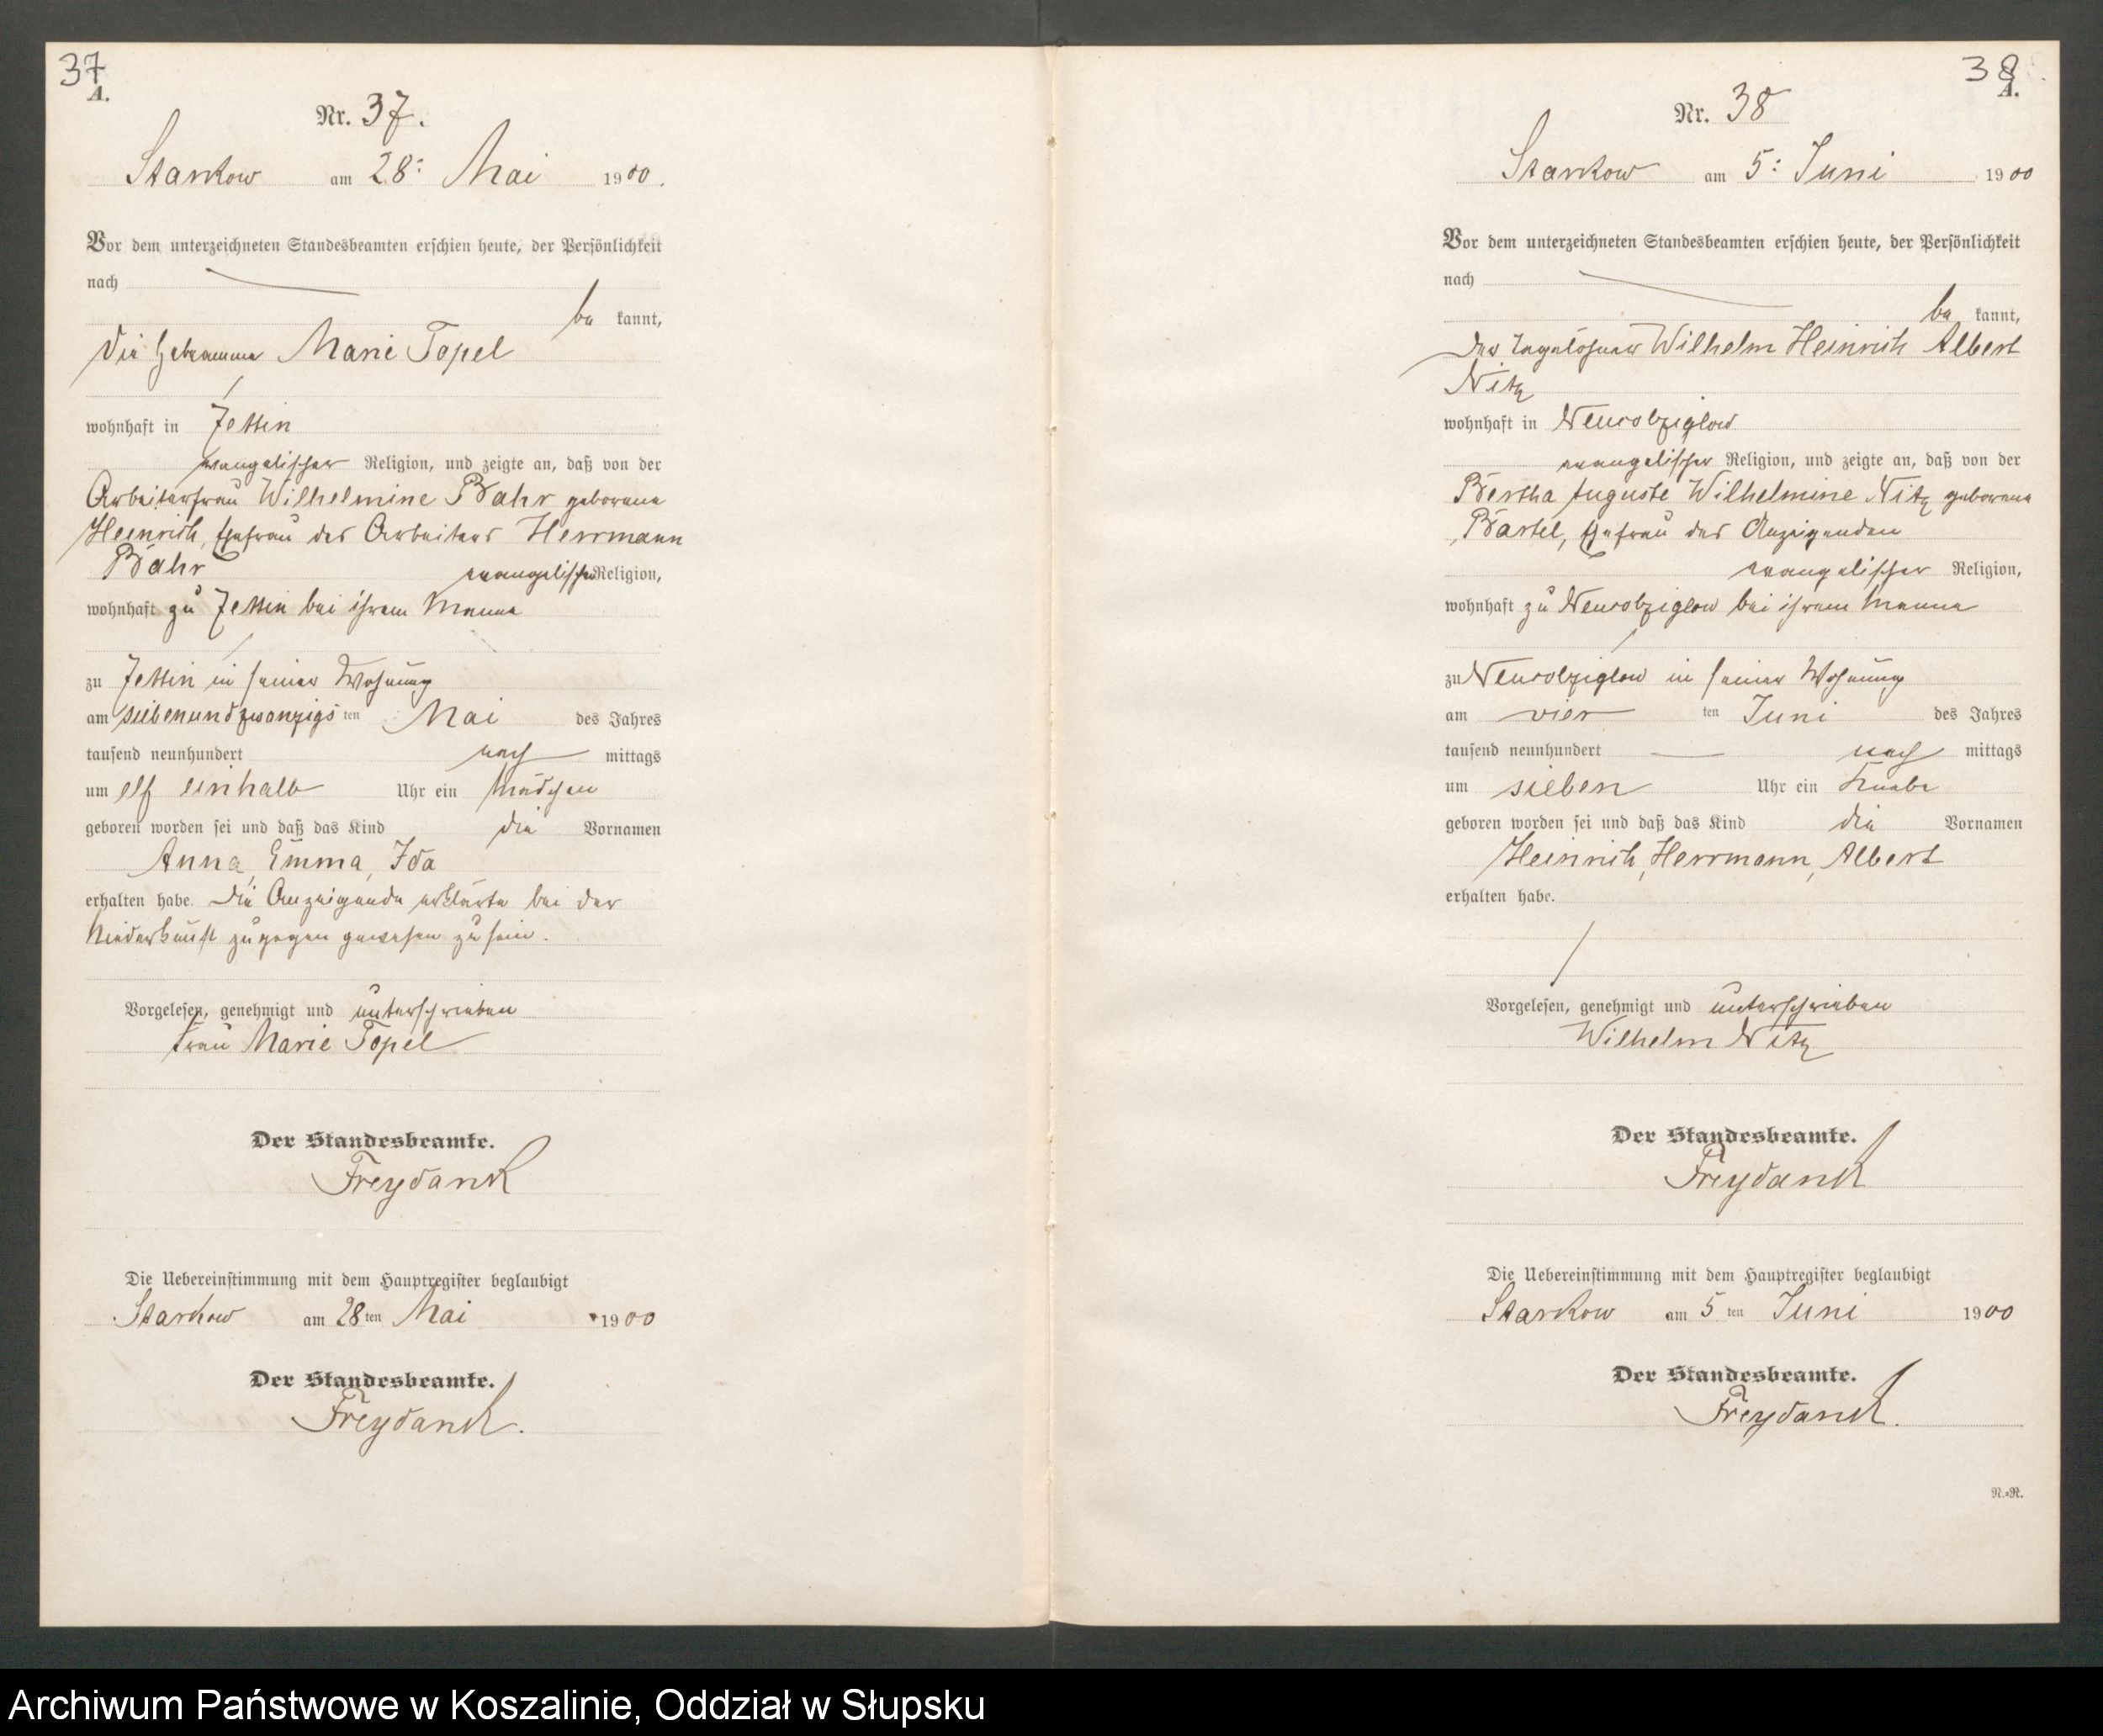 37
A.
Nr. 37.
Starkow am 28: Mai 1900.
Vor dem unterzeichneten Standesbeamten erschien heute, der Persönlichkeit
nach
be kannt,
die Hebamme Marie Topel
wohnhaft in Jettin
evangelischer Religion, und zeigte an, daß von der
Arbeiterfrau Wilhelmine Bahr geborene
Heinrich, Ehefrau des Arbeiters Herrmann
Bahr evangelischer Religion,
wohnhaft zu Jettin bei ihrem Manne
zu Jettin in seiner Wohnung
am siebenundzwanzigsten Mai des Jahres
tausend neunhundert nach mittags
um elf einhalb Uhr ein Mädchen
geboren worden sei und daß das Kind die Vornamen
Anna, Emma, Ida
erhalten habe. Die Anzeigende erklärte bei der
Niederkunft zugegen gewesen zu sein.
Vorgelesen, genehmigt und unterschrieben
Frau Marie Topel
Der Standesbeamte.
Freydank
Die Uebereinstimmung mit dem Hauptregister beglaubigt
Starkow am 28ten Mai 1900
Der Standesbeamte.
Freydank.
38
A.
Nr. 38
Starkow am 5: Juni 1900
Vor dem unterzeichneten Standesbeamten erschien heute, der Persönlichkeit
nach
be kannt,
der Tagelöhner Wilhelm Heinrich Albert
Nitz
wohnhaft in Neukolziglow
evangelischer Religion, und zeigte an, daß von der
Bertha Auguste Wilhelmine Nitz geborene
Bartel, Ehefrau des Anzeigenden
evangelischer Religion,
wohnhaft zu Neukolziglow bei ihrem Manne
zu Neukolziglow in seiner Wohnung
am vier ten Juni des Jahres
tausend neunhundert nach mittags
um sieben Uhr ein Knabe
geboren worden sei und daß das Kind die Vornamen
Heinrich, Herrmann, Albert
erhalten habe.
Vorgelesen, genehmigt und unterschrieben
Wilhelm Nitz
Der Standesbeamte.
Freydank
Die Uebereinstimmung mit dem Hauptregister beglaubigt
Starkow am 5 ten Juni 1900
Der Standesbeamte.
Freydank.
N.=N.
Archiwum Państwowe w Koszalinie, Oddział w Słupsku